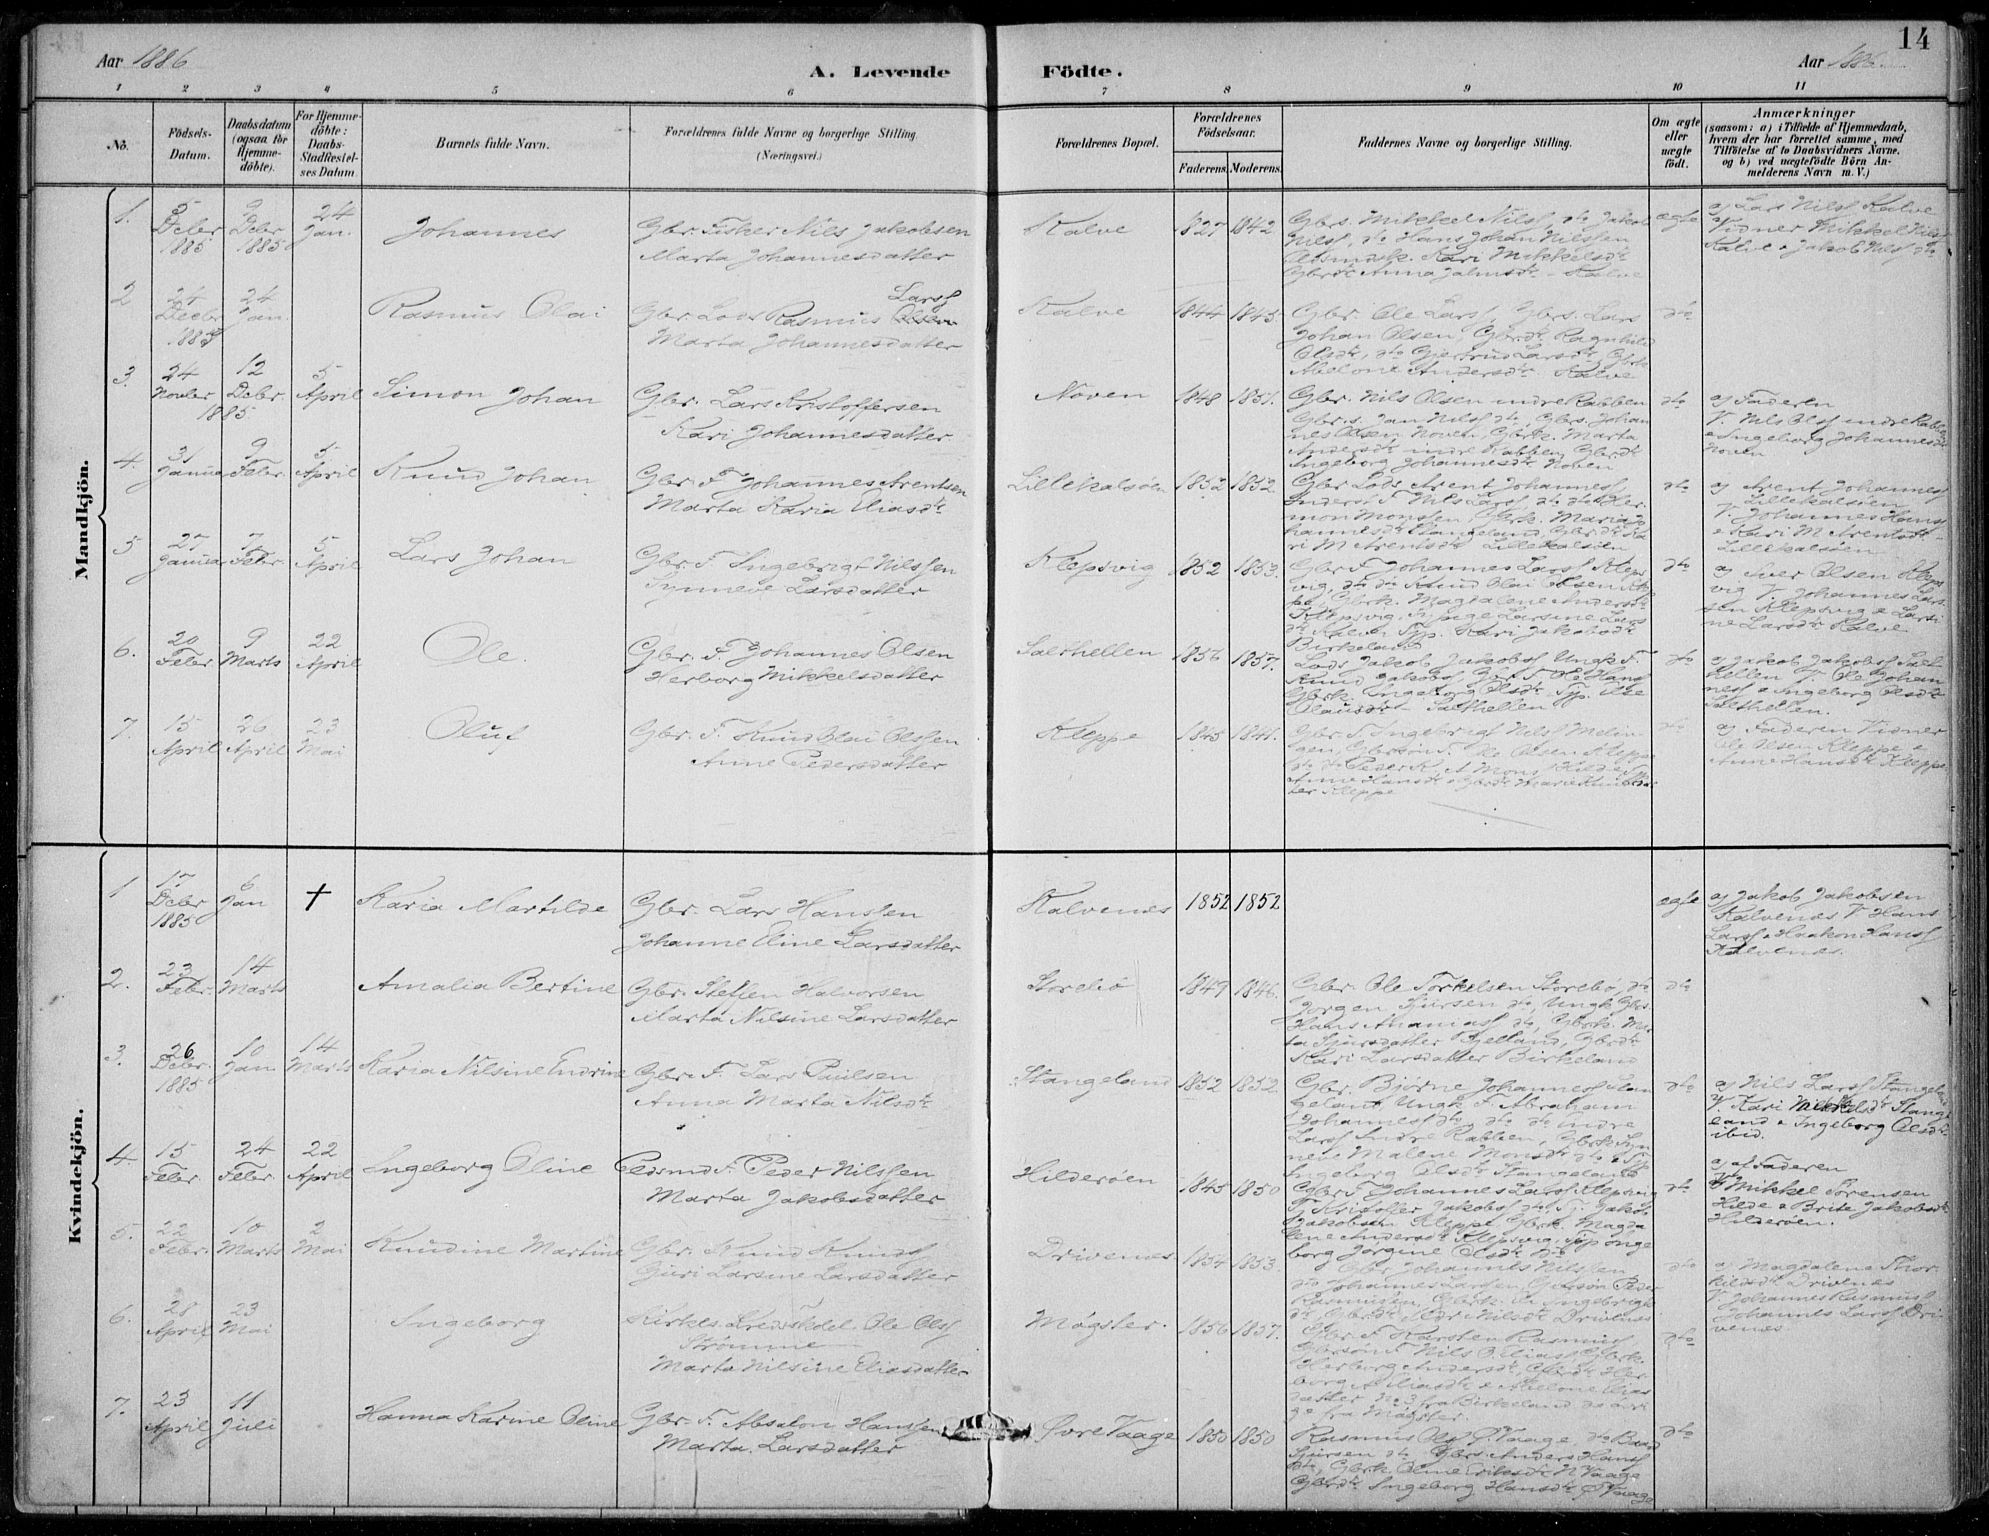 14
Aar 1886
A. Levende Födte.
Aar 1886.
1 2 3 4 5 6 7 8 9 10 11
No.
Födsels-
Datum.
Daabsdatum
(ogsaa for
Hjemme-
döbte).
For Hjemme-
döbte:
Daabs-
Stadfæstel-
ses Datum
Barnets fulde Navn.
Forældrenes fulde Navne og borgerlige Stilling.
(Næringsvei.)
Forældrenes Bopæl.
Forældrenes
Födselsaar.
Faderens. Moderens.
Faddernes Navne og borgerlige Stilling.
Om ægte
eller
uægte
födt.
Anmærkninger
(saasom: a) i Tilfælde af Hjemmedaab,
hvem der har forrettet samme, med
Tilföielse af to Daabsvidners Navne,
og b) ved uægtefödte Börn An-
melderens Navn m. V.)
Mandkjön.
1.
5
Debr
1885
9
Debr
1885
24
Jan.
Johannes
Gbr. Fisker Nils Jakobsen
Marta Johannesdatter
Kalve
1827 1842
Gbrs. Mikkel Nilss, dto Jakob
Nilss, dto Hans Johan Nilssen
Kari Mikkelsdt
Gbrdt Anna Kalve
ægte
a) Lars Nilss Kalve
Vidner Mikkel Nilss
Kalve & Jakob Nilss dto
2
24
Decbr
1885
24
Jan.
Rasmus Olai
Larss
Gbr. Lods Rasmus Olsen
Marta Johannesdatter
Kalve
1844 1845.
Gbr. Ole Larss, Gbrs. Lars
Johan Olsen, Gbrdt. Ragnhild
Olsdt, dto Gjertrud Larsdt, Gbrk
Abelone Andersdt. Kalve
dto
3.
24
Novbr
12
Debr.
1885
5
April
Simon Johan
Gbr. Lars Kristoffersen
Kari Johannesdatter
Noven
1848 1851.
Gbr. Nils Olsen indre Rabben
Gbr.s. Jan Nilss dto, Gbrs. Johan
nes Olsen Noven, Gbrk. Marta
Andersdt indre Rabben, Gbrdt
Ingeborg Johannesdt Noven
dto
a) Faderen
V. Nils Olss indre Rabben
& Ingeborg Johannesdt
Noven
4.
31
Janua
9
Febr.
5
April
Knud Johan
Gbr. F. Johannes Arentsen
Marta Karia Eliasdt
Lillekalsöen
1852 1852.
Gbr. Lods Arent Johanness
F. Nils Larss, dto dto Her
mon Monsen, Gbrk. Maria Jo
hannesdt Stangeland, Gbrdt Ka
ri M Arentsdt Lillekalsöen
dto
a) Arent Johanness
Lillekalsöen
V. Johannes Hanss
& Kari M Arentsdt
Lillekalsöen
5
27
Janua
7
Febr.
5
April
Lars Johan
Gbr. F. Ingebrigt Nilssen
Synneve Larsdatter
Klepsvig
1852 1853.
Gbr. F. Johannes Larss Kleps
vig, dto dto Knud Olai Olsen Klep
pe, Gbrk. Magdalene Andersdt
Klepsvig, Larsine Lars
dt Kalve, Pip. Kari Jakobsdt
Birkeland
dto
a) Iver Olsen Kleps
vig V. Johannes Lars
sen Klepsvig & Larsi
ne Larsdt Kalve
6.
20
Febr.
9
Marts
22
April
Ole.
Gbr. F. Johannes Olsen
Herborg Mikkelsdatter
Salthellen
1856 1857.
Lods Jakob Jakobss Ungk. F.
Knud Jakobss Gbr. F. Ole Hanss
Gbrk. Ingeborg Olsdt, Pip. Else
Olausdt - Salthellen
dto
a) Jakob Jakobss Salt
hellen V. Ole Johan
ness & Ingeborg Olsdt
Salthellen.
7.
15
April
26
April
23
Mai
Oluf
Gbr. F. Knud Olai Olssen
Anne Pedersdatter
Kleppe
1845 1841.
Gbr. F. Ingebrigt Nilss Melin
gen, Gbrsön F. Ole Olsen Kleppe
dto dto Peder K. A Mons Hilde,
Anne Hansdt & Gbrdt Marie Knudsdat
ter Kleppe
dto
a) Faderen Vidner
Ole Olsen Kleppe &
Anne Hansdt Kleppe
Kvindekjön.
1
17
Debr
1885
6
Jan
†
Karia Martilde
Gbr. Lars Hanssen
Johanne Eline Larsdatter
Kalvenes
1852 1852
ægte
a) Jakob Jakobsen
Kalvenes V Hans
Larss & Haakon Hanss
Kalvenes.
2.
23
Febr.
14
Marts
Amalia Bertine
Gbr. Steffen Halvorsen
Marta Nilsine Larsdatter
Storebö
1849 1846.
Gbr. Ole Torkelsen Storebö, dto
Jörgen Sjursen dto, Ungk. Gbs.
Hans Ananiass dto, Gbrk. Mar
ta Sjursdatter Bjelland, Gbrdt
Kari Larsdatter Birkeland
dto
3.
26
Debr.
1885
10
Jan.
14
Marts
Karia Nilsine Endrine
Gbr. F. Lars Paulsen
Anna Marta Nilsdt
Stangeland
1852 1852.
Gbr. Bjørne Johanness Stan
geland Ungk F. Abraham
Johanness dto, dto dto indre
Larss Indre Rabben, Gbrk. Syn
neve Malene Monsdt dto &
Ingeborg Olsdt Stangeland
dto
a) Nils Larss Stangeland
V. Kari Mikkelsdt Stange
land & Ingeborg Olsdt
ibid.
4.
15
Febr.
24
Febr.
22
April
Ingeborg Oline
Pedsmd F. Peder Nilssen
Marta Jakobsdatter
Hilderöen
1845 1850
Gbr F. Johannes Larss Klepsvig
F. Kristoffer Jakobss dto Jakob
Jakobsen Kleppe, Gbrk. Magda
lene Andersdt Klepsvig, Pip Inge
borg Jörgine Olsdt dto
dto
a) af Faderen
V Mikkel Sörensen
Hilde & Brite Jakobsdt
Hilderöen.
5.
22
Febr.
10
Marts
2
Mai
Knudine Martine
Gbr. Knud Knudss
Guri Larsine Larsdatter
Drivenes
1854 1853.
Gbr Johannes Nilssen
dto Johannes Larssen, Gbrsön Peder
Rasmussen, Gbrk. Ingebrigts
dt Gbrdt Nilsdt Drivenes
dto
a) Magdalena Thor
kildsdt Drivenes
V. Johannes Rasmuss
Johannes Larss Dri
venes
6.
28
April
23
Mai
Ingeborg
Ole Olss
Strömme
Marta Nilsine Eliasdatter
Møgster.
1856 1857.
Gbr F. Karsten Rasmuss
Gbrsön F. Nils Eliass Gbrk.
Herborg Andersdt, Gbrdt Her
borg Eliasdt & Abelone Elias
datter No 3 fra Birkeland de övri
ge fra Møgster.
dto
7.
23
April
11
Juli
Hanna Karine Oline
Gbr. F. Absalon Hanssen
Marta Larsdatter
Øvre Vaage
1850 1850
Rasmus Olss Ø. Vaage, dto Baard
Sjursen dto Gbrs. Anders Hanss
dto, Gbrk. Oline Eriksdt N Vaage
Gbrdt Ingeborg Hansdt Ø Vaage
dto